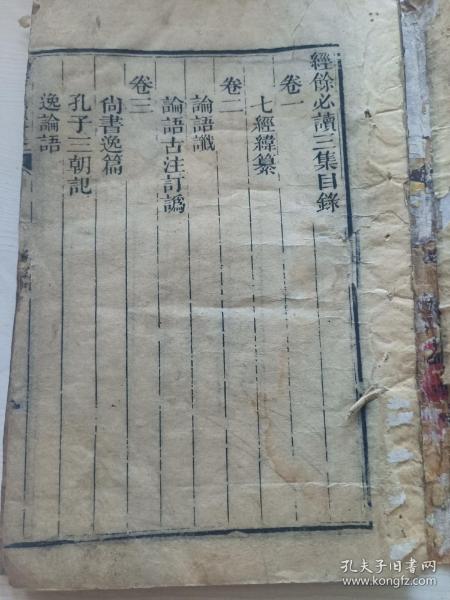 經餘必讀三集目錄
卷一
七經緯纂
卷二
論語讖
論語古注訂譌
卷三
尚書逸篇
孔子三朝記
逸論語
孔夫子旧书网
www.kongfz.com